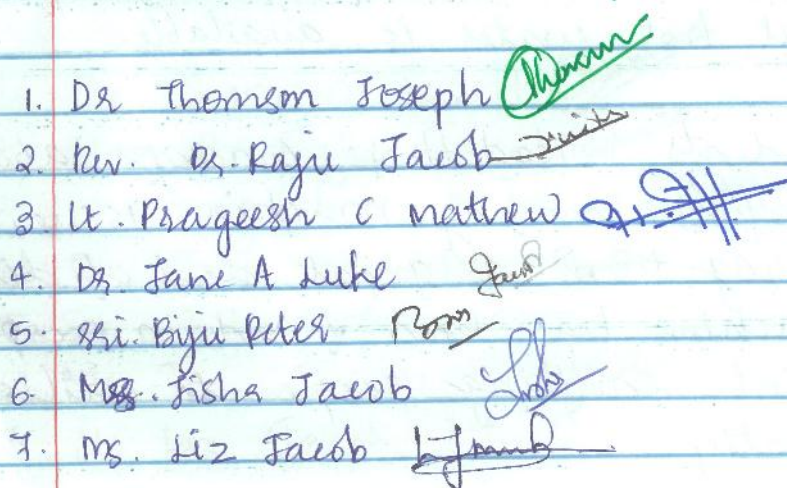 1. Dr Thomson Joseph
2. Rev. Dr. Raju Jacob
3. Lt. Prageesh C Mathew
4. Dr. Jane A Luke
5. Sri. Biju Peter
6. Ms. Jisha Jacob
7. Ms. Liz Jacob